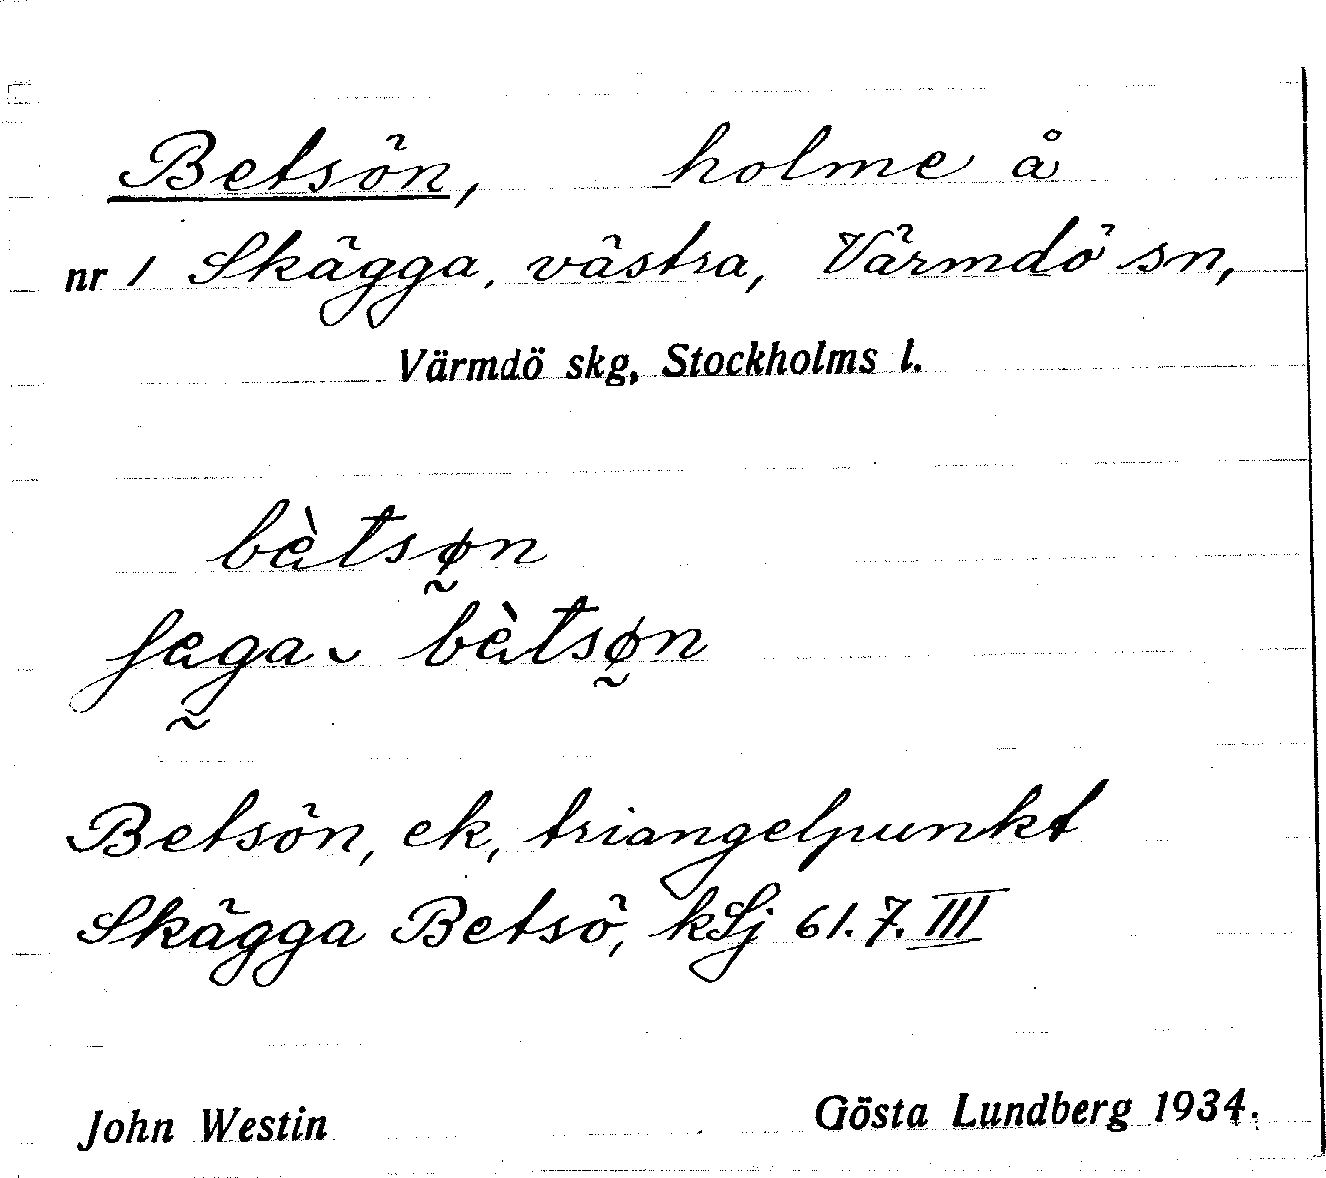 Betsön, holme å
nr 1 Skägga, västra, Värmdö sn,
Värmdö skg, Stockholms l.
bètsø̰n
bètsø̰n
Betsön, ek, triangelpunkt
Skägga Betsö, kSj 61.7.III
John Westin Gösta Lundberg 1934.